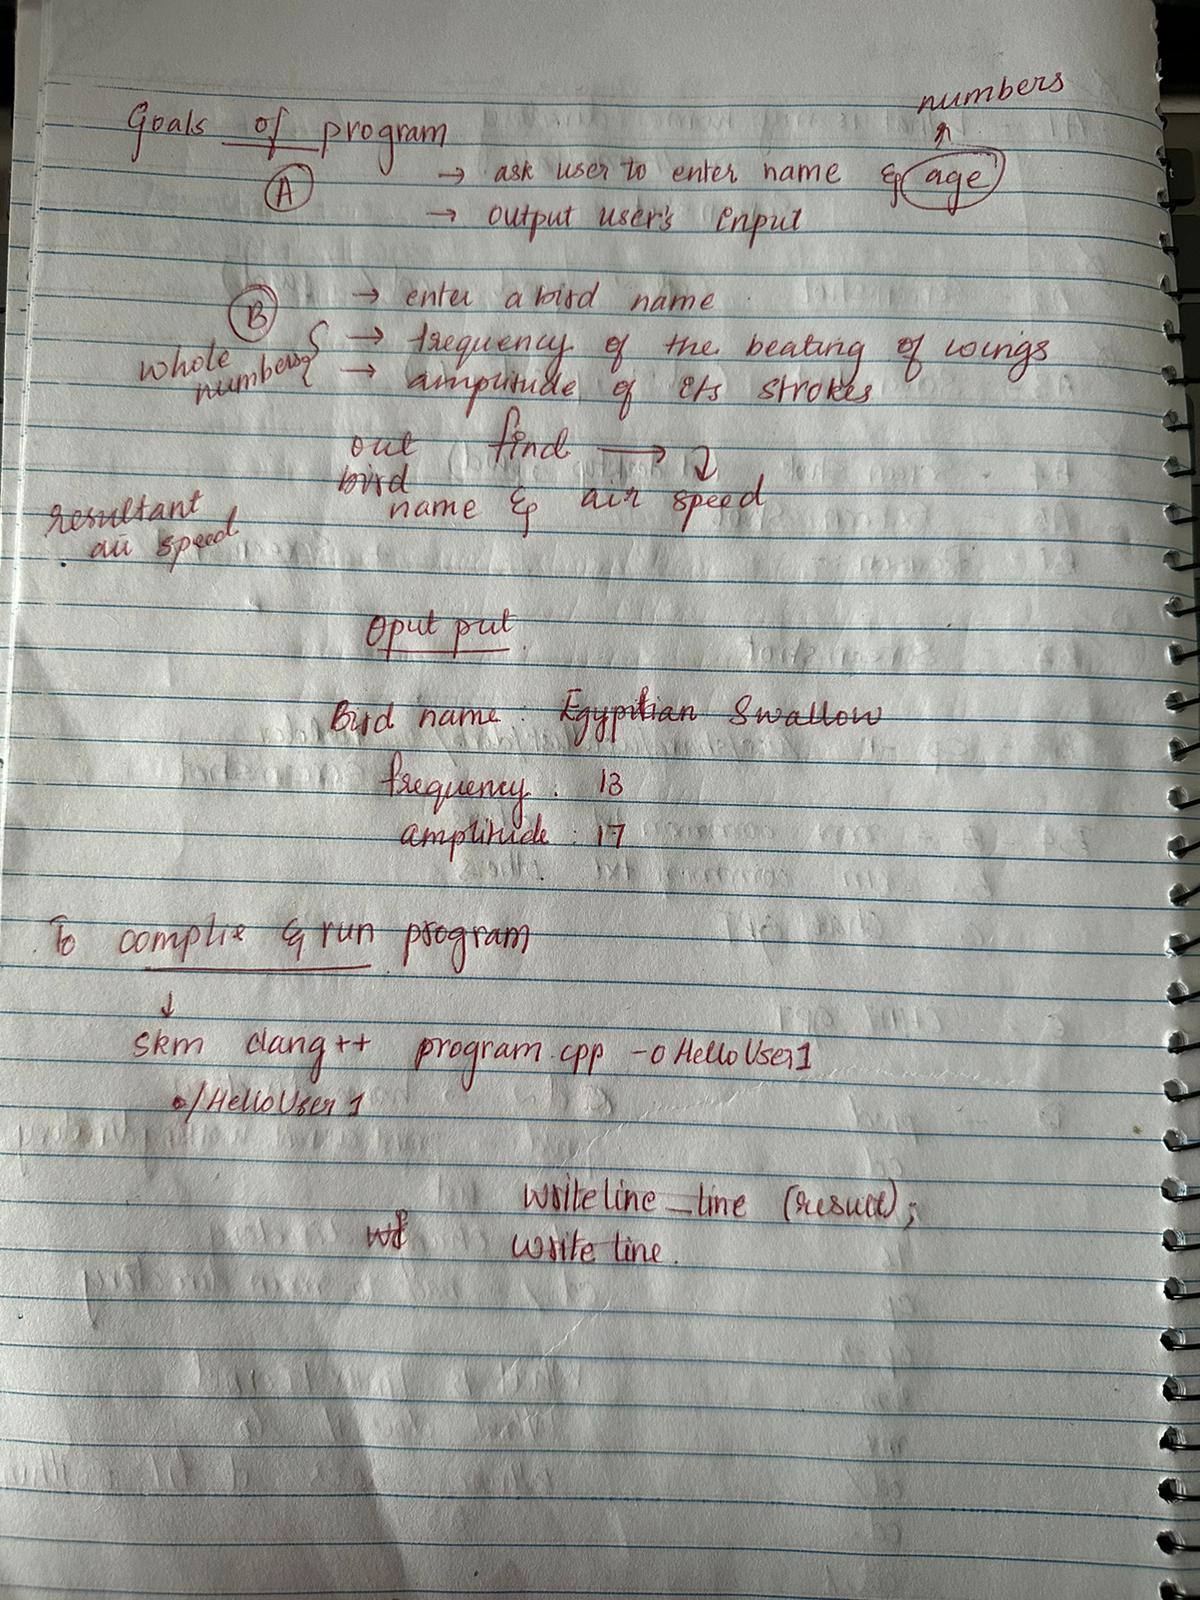 numbers
Goals of program
A → ask user to enter name & age
→ output user's input
B → enter a bird name
whole numbers { → frequency of the beating of wings
→ amplitude of its strokes
out find →
bird
name & air speed
resultant
air speed
Oput put
Bird name : Egyptian Swallow
frequency : 13
amplitude : 17
To complie & run program
↓
skm clang++ program.cpp -o HelloUser1
./HelloUser1
writeline_line (result);
write line.